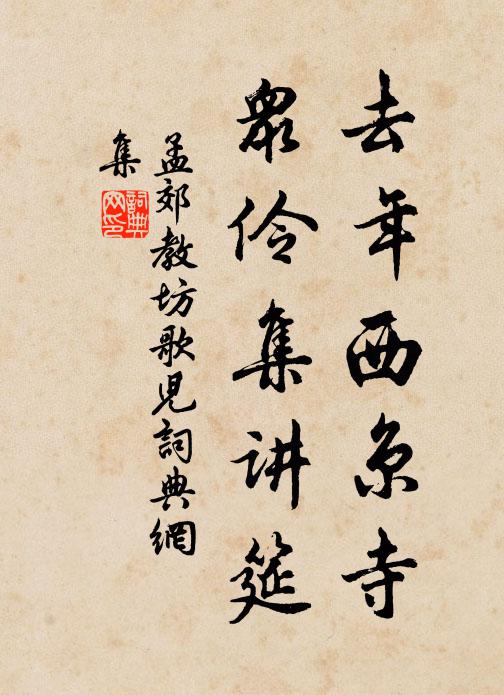 去年西京寺
眾伶集讲筵
孟郊教坊歌児詞典網
集
詞典
网印